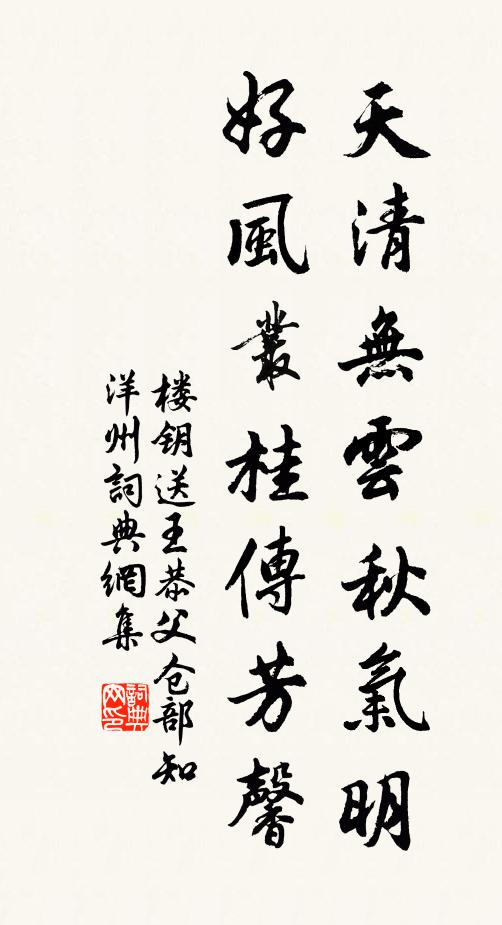 天清無雲秋氣明
好風叢桂傳芳馨
楼钥送王恭父仓部知
洋州詞典網集
詞典
网印